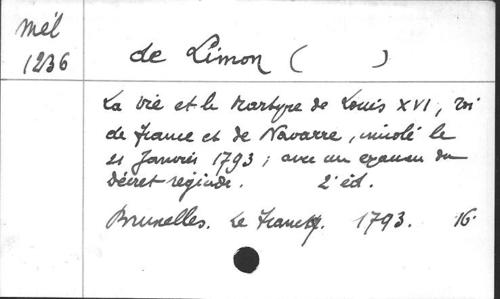 Mél
1236
de Limon ( )
La vie et le Martyre de Louis XVI, roi
de France et de Navarre, imolé le
21 Janvier 1793; avec un examen du
décret régicide. 2e éd.
Bruxelles. Le Francq. 1793. 16.